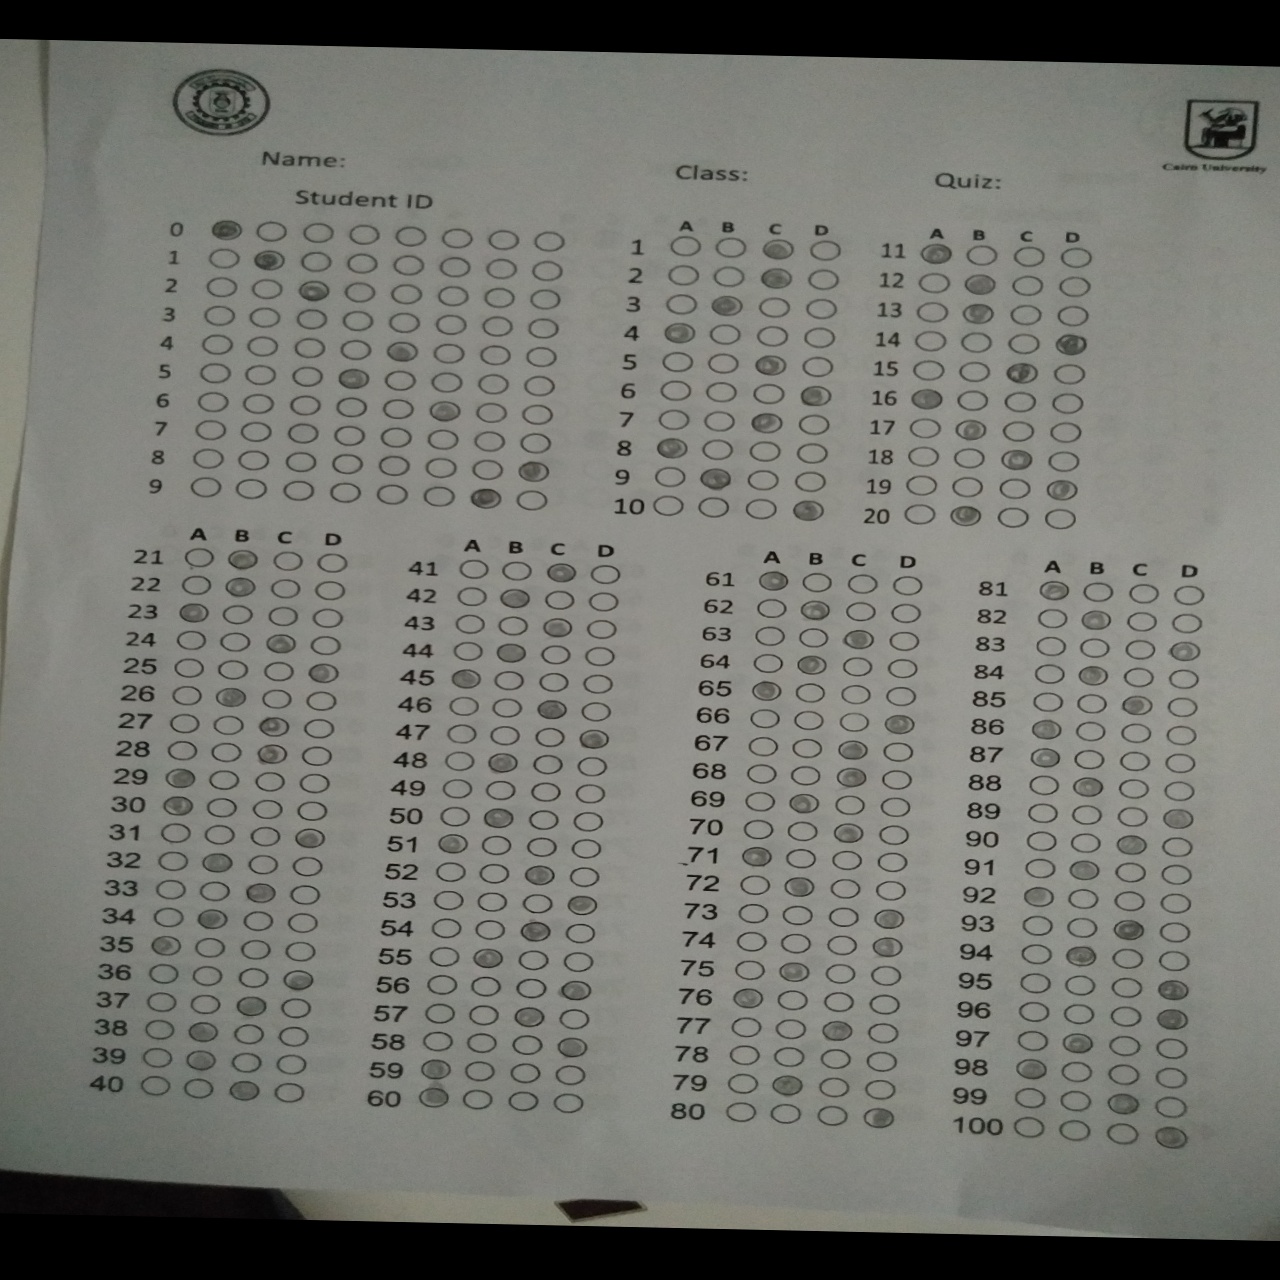 Name:
Class:
Quiz:
Cairo University
Student ID
0
1
2
3
4
5
6
7
8
9
A B C D
1
2
3
4
5
6
7
8
9
10
A B C D
11
12
13
14
15
16
17
18
19
20
A B C D
21
22
23
24
25
26
27
28
29
30
31
32
33
34
35
36
37
38
39
40
A B C D
41
42
43
44
45
46
47
48
49
50
51
52
53
54
55
56
57
58
59
60
A B C D
61
62
63
64
65
66
67
68
69
70
71
72
73
74
75
76
77
78
79
80
A B C D
81
82
83
84
85
86
87
88
89
90
91
92
93
94
95
96
97
98
99
100